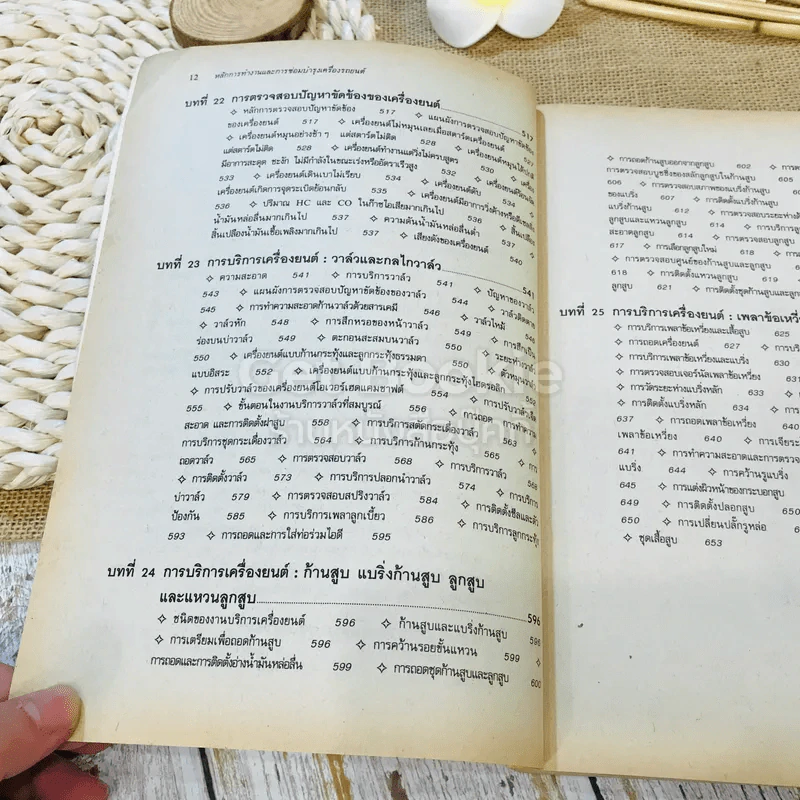 12 หลักการทำงานและการซ่อมบำรุงเครื่องรถยนต์
บทที่ 22 การตรวจสอบปัญหาขัดข้องของเครื่องยนต์ 517
✧ หลักการตรวจสอบปัญหาขัดข้อง 517 ✧ แผนผังการตรวจสอบปัญหาขัดข้อง
ของเครื่องยนต์ 517 ✧ เครื่องยนต์ไม่หมุนเลยเมื่อสตาร์ตเครื่องยนต์ 527
✧ เครื่องยนต์หมุนอย่างช้า ๆ แต่สตาร์ตไม่ติด 528 ✧ เครื่องยนต์หมุนได้ปกติ
แต่สตาร์ตไม่ติด 528 ✧ เครื่องยนต์ทำงานแต่วิ่งไม่ครบสูบ 530 ✧ เครื่องยนต์
มีอาการสะดุด ชะงัก ไม่มีกำลังในขณะเร่งหรืออัตราเร็วสูง
533 ✧ เครื่องยนต์เดินเบาไม่เรียบ 534 ✧ เครื่องยนต์ดับ
เครื่องยนต์เกิดการจุดระเบิดย้อนกลับ 535 ✧ เครื่องยนต์มีอาการวิ่งค้าง
536 ✧ ปริมาณ HC และ CO ในก๊าซไอเสียมากเกินไป 537 ✧ สิ้นเปลือง
น้ำมันหล่อลื่นมากเกินไป 537 ✧ ความดันน้ำมันหล่อลื่นต่ำ
สิ้นเปลืองน้ำมันเชื้อเพลิงมากเกินไป 537 ✧ เสียงดังของเครื่องยนต์ 540
บทที่ 23 การบริการเครื่องยนต์ : วาล์วและกลไกวาล์ว 541
✧ ความสะอาด 541 ✧ การบริการวาล์ว 541 ✧ ปัญหาของวาล์ว
543 ✧ แผนผังการตรวจสอบปัญหาขัดข้องของวาล์ว 544 ✧ วาล์วติดตาย
545 ✧ การทำความสะอาดก้านวาล์วด้วยสารเคมี 546 ✧ วาล์วไหม้
✧ วาล์วหัก 548 ✧ การสึกหรอของหน้าวาล์ว 549 ✧ การสึกเป็น
ร่องบนบ่าวาล์ว 549 ✧ ตะกอนสะสมบนวาล์ว ✧ ระยะห่างวาล์ว
550 ✧ เครื่องยนต์แบบก้านกระทุ้งและลูกกระทุ้งธรรมดา 550
แบบอิสระ 552 ✧ เครื่องยนต์แบบก้านกระทุ้งและลูกกระทุ้งไฮดรอลิก
✧ การปรับวาล์วของเครื่องยนต์โอเวอร์เฮดแคมชาฟต์
555 ✧ ขั้นตอนในงานบริการวาล์วที่สมบูรณ์ ✧ การถอด การทำความ
สะอาด และการติดตั้งฝาสูบ 558 ✧ การบริการสตัดกระเดื่องวาล์ว
การบริการชุดกระเดื่องวาล์ว 564 ✧ การบริการก้านกระทุ้ง 565 ✧ การ
ถอดวาล์ว 565 ✧ การตรวจสอบวาล์ว 568 ✧ การบริการวาล์ว 568
✧ การติดตั้งวาล์ว 573 ✧ การบริการปลอกนำวาล์ว 574 ✧ การบริการ
บ่าวาล์ว 579 ✧ การตรวจสอบสปริงวาล์ว 584 ✧ การติดตั้งซีลและตัว
ป้องกัน 585 ✧ การบริการเพลาลูกเบี้ยว 586 ✧ การบริการลูกกระทุ้ง
593 ✧ การถอดและการใส่ท่อร่วมไอดี 595
บทที่ 24 การบริการเครื่องยนต์ : ก้านสูบ แบริ่งก้านสูบ ลูกสูบ
และแหวนลูกสูบ 596
✧ ชนิดของงานบริการเครื่องยนต์ 596 ✧ ก้านสูบและแบริ่งก้านสูบ 596
✧ การเตรียมเพื่อถอดก้านสูบ 596 ✧ การคว้านรอยขั้นแหวน 599 ✧
การถอดและการติดตั้งอ่างน้ำมันหล่อลื่น 599 ✧ การถอดชุดก้านสูบและลูกสูบ 600
✧ การถอดก้านสูบออกจากลูกสูบ 602
การตรวจสอบบูชซิ่งของสลักลูกสูบในก้านสูบ 605
606 ✧ การตรวจสอบสภาพของแบริ่งก้านสูบ
ของแบริ่ง 607 ✧ การติดตั้งแบริ่งก้านสูบ
แบริ่งก้านสูบ 612 ✧ การตรวจสอบระยะห่าง
ลูกสูบและแหวนลูกสูบ 614 ✧ การบริการลูกสูบ
สะอาดลูกสูบ 614 ✧ การตรวจสอบลูกสูบ
617 ✧ การเลือกลูกสูบใหม่ 617
✧ การตรวจสอบศูนย์ของก้านสูบและลูกสูบ
618 ✧ การติดตั้งแหวนลูกสูบ
ลูกสูบ 621 ✧ การติดตั้งชุดก้านสูบและลูก
บทที่ 25 การบริการเครื่องยนต์ : เพลาข้อเหวี่ยง
✧ การบริการเพลาข้อเหวี่ยงและเสื้อสูบ 625
✧ การถอดเครื่องยนต์ 627
✧ การบริการเพลาข้อเหวี่ยงและแบริ่ง
✧ การตรวจสอบเจอร์นัลเพลาข้อเหวี่ยง
✧ การวัดระยะห่างแบริ่งหลัก 631
✧ การติดตั้งแบริ่งหลัก 634
637 ✧ การถอดเพลาข้อเหวี่ยง
เพลาข้อเหวี่ยง 640 ✧ การเจียระ
641 ✧ การทำความสะอาดและการตรวจ
แบริ่ง 644 ✧ การคว้านรูแบริ่ง
645 ✧ การแต่งผิวหน้าของกระบอกสูบ
649 ✧ การติดตั้งปลอกสูบ
650 ✧ การเปลี่ยนปลั๊กรูหล่อ
✧ ชุดเสื้อสูบ 653